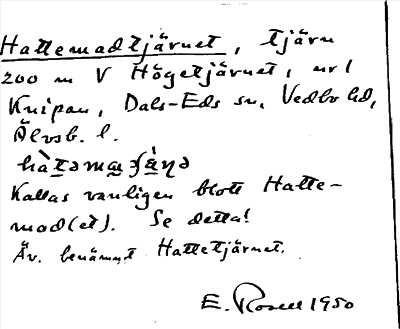 Hattemadtjärnet, tjärn
200 m V Högetjärnet, nr 1
Knipan, Dals-Eds sn, Vedbo hd,
Älvsb. l.
Kallas vanligen blott Hatte-
mad(et). Se detta!
Äv. benämnt Hattetjärnet.
E. Rosell 1950